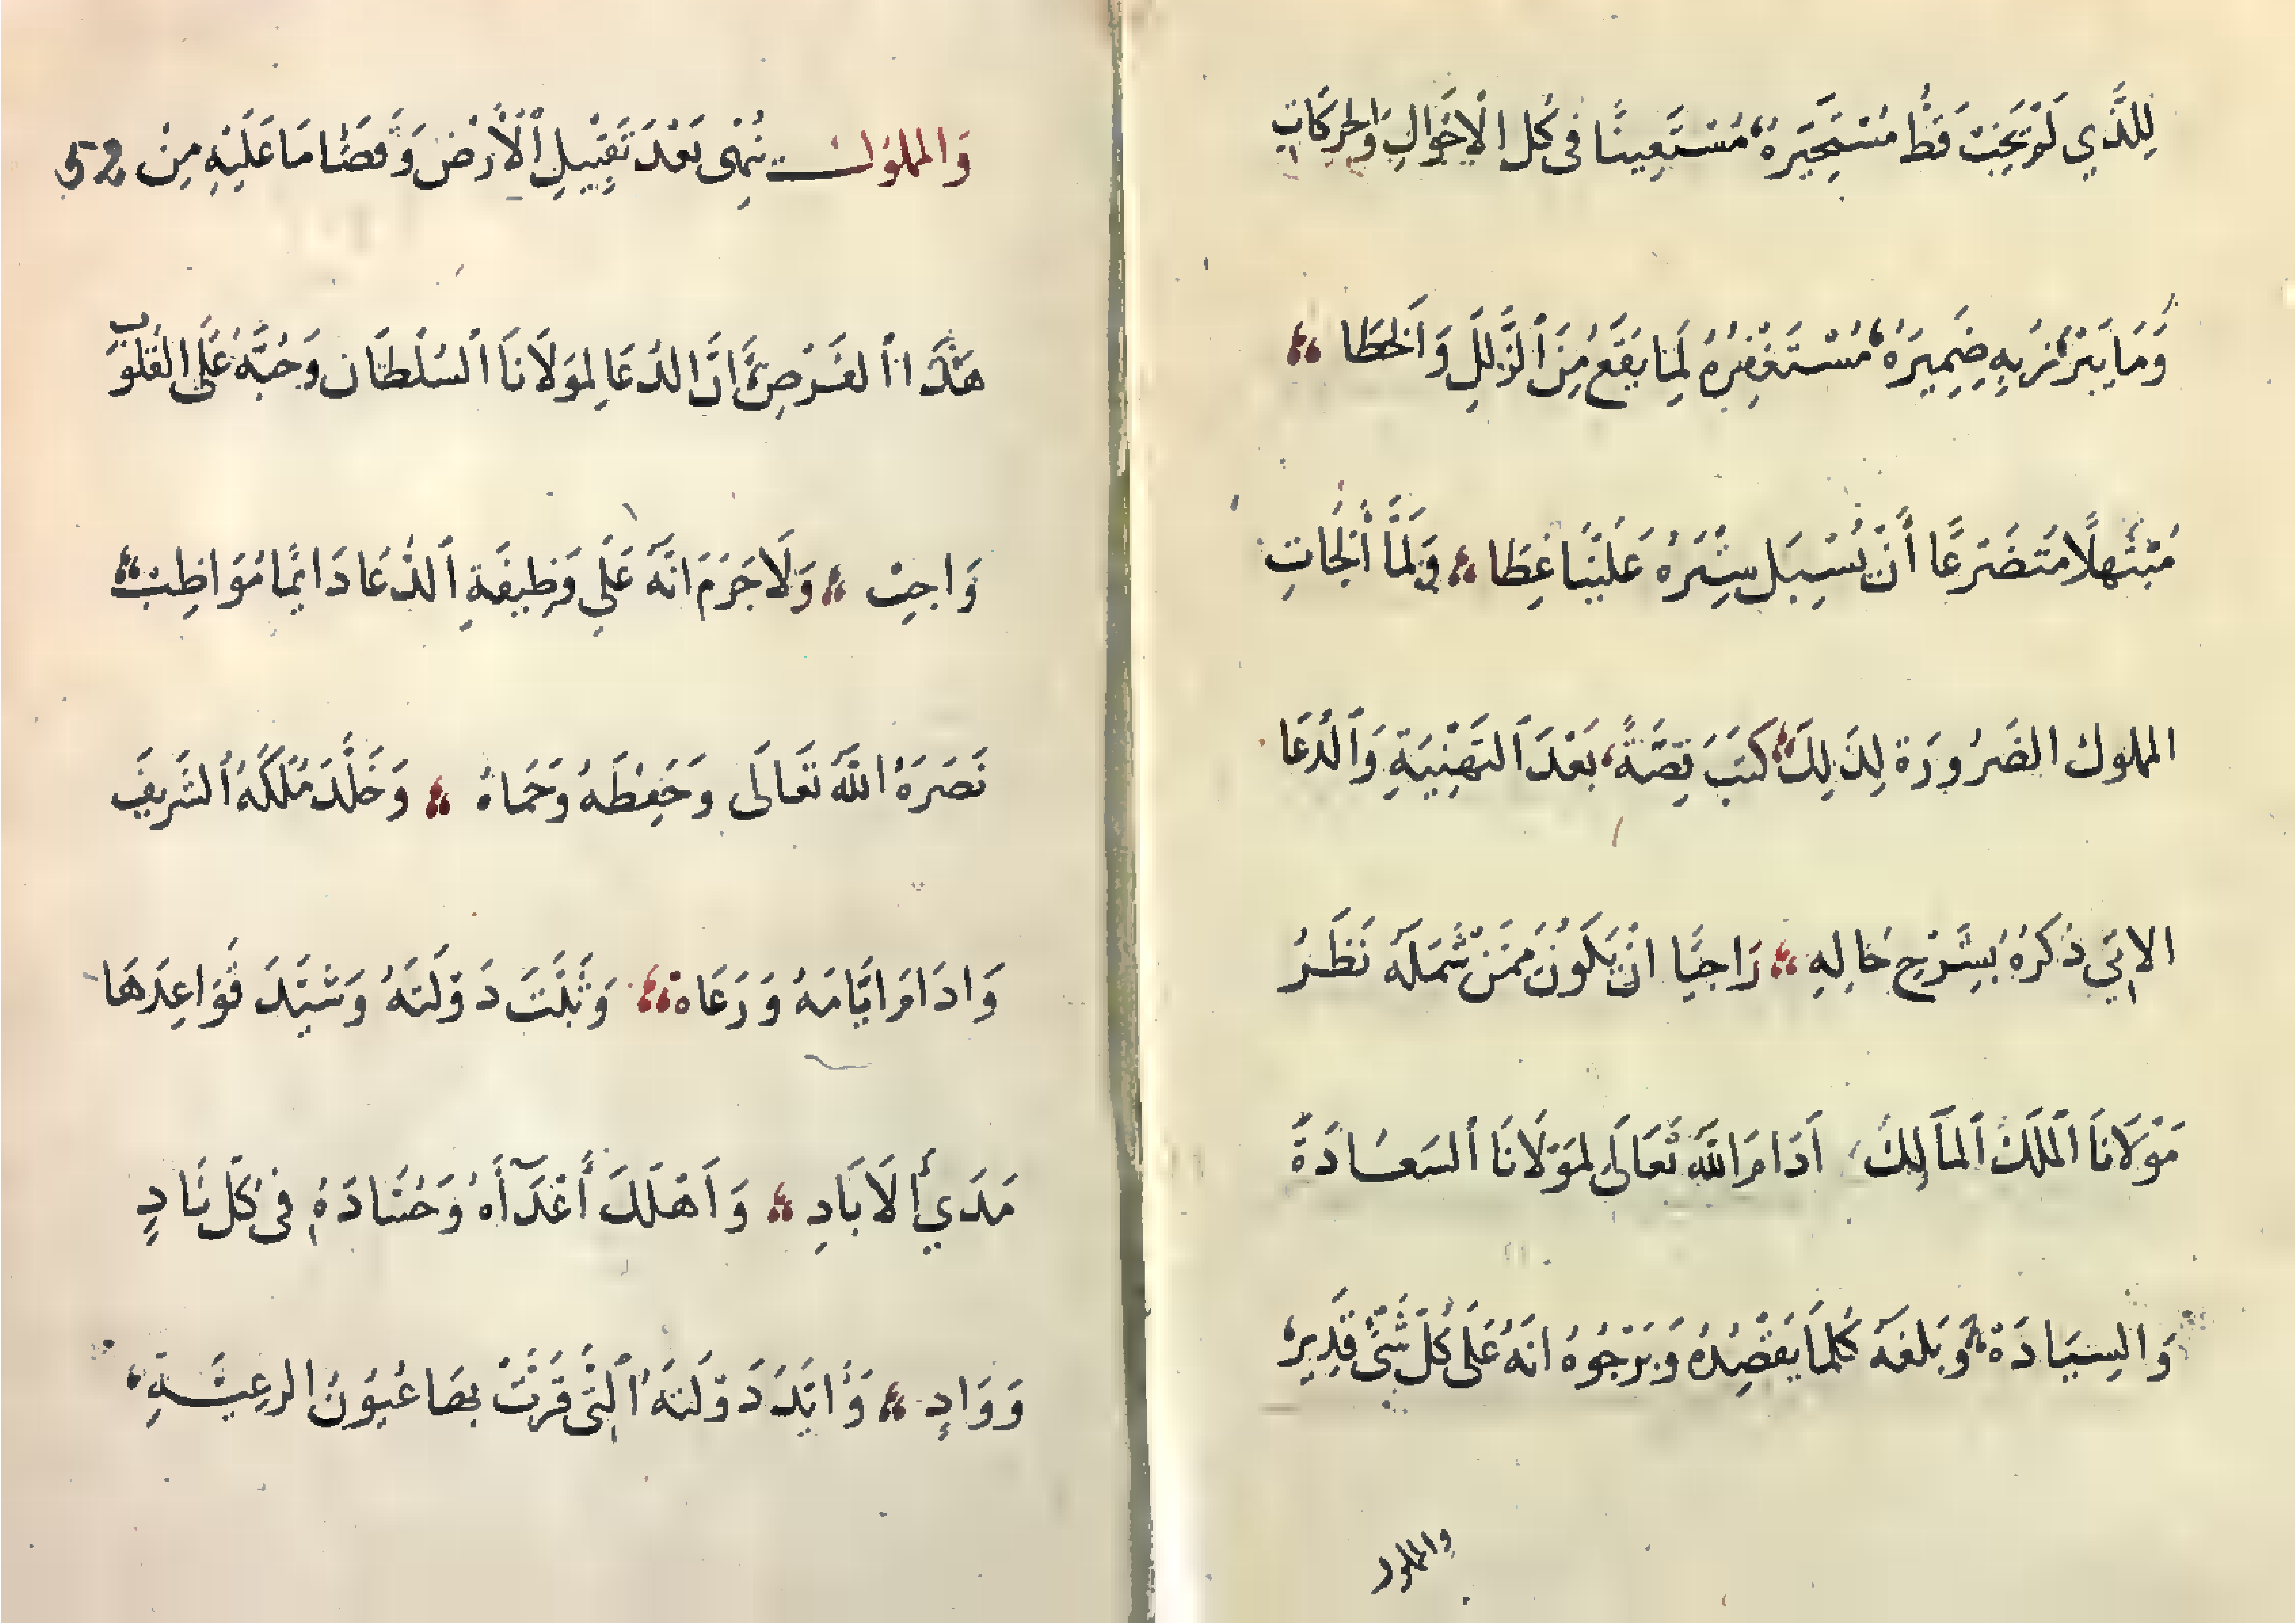 لِلَّذِي لَمْ يَخِبْ قَطُّ مُسْتَجِيرُهُ، مُسْتَعِينًا فِي كُلِ الْاَحْوَالِ وَالْحَرَكَاتِ
وَمَا يَبْرُزُ بِهِ ضَمِيرُهُ، مُسْتَغْفِرُهُ لِمَا يَقَعُ مِنَ الزَّلَلِ وَالْخَطَا
مُبْتَهِلًا مُتَضَرِعًا أَنْ يُسْبِلَ سِتْرَهُ عَلَيْنَا غِطَا وَلَمَّا أَلْجَاتِ
المملوك الضَرُورَة لِذَلِكَ كَتَبَ قِصَّةً، بَعْدَ التَهْنِيَةِ وَالدُعَا
الاتِي ذِكْرُهُ بِشَرْحِ حَالِهِ رَاجِيًا انْ يَكُونَ مِمَنْ شَمَلَهُ نَظَرُ
مَوْلَانَا الْمَلَكْ الْمَالِكْ اَدَامَ اللّٰهُ تَعَالَى لِمَوْلَانَا السَعَادَةَ
وَالسِيَادَة وَبَلغَهُ كُلمَا يَقْصِدُهُ وَيَرْجُوهُ انَهُ عَلَى كُلِ شَىْءٍ قَدِيرٌ
والملوك
وَالمملوك يُنْهِى بَعْدَ تَقْبِيلِ الْأَرْضْ وَقَضَا مَا عَلَيْهِ مِنْ 52
هَذَا الفَرْضِ اَنَّ الدُعَا لِمَوْلَانَا السُلْطَان وَحُبَّهُ عَلَى القُلُوب
وَاجِبْ وَلَا جَرَمَ انَّهُ عَلَي وَظِيفَةِ الدُعَا دَايمًا مُوَاظِبْ
نَصَرَهُ اللّٰهُ تَعَالَى وَحَفِظَهُ وَحَمَاهُ وَخَلَّدَ مُلْكَهُ الشَرِيفَ
وَادَامَ ايَّامَهُ وَرَعَاه وَثَبَّتَ دَوْلَتَهُ وَشَيَّدَ قَوَاعِدَهَا
مَدَي الَابَادِ وَاَهْلَكَ أَعْدَآأَهُ وَحُسَادَهُ فِى كُل نَادٍ
وَوَادٍ وَايَّدَ دَوْلَتَهُ الَّتِى قَرَّتْ بِهَا عُيُونُ الرعِيَّةِ،